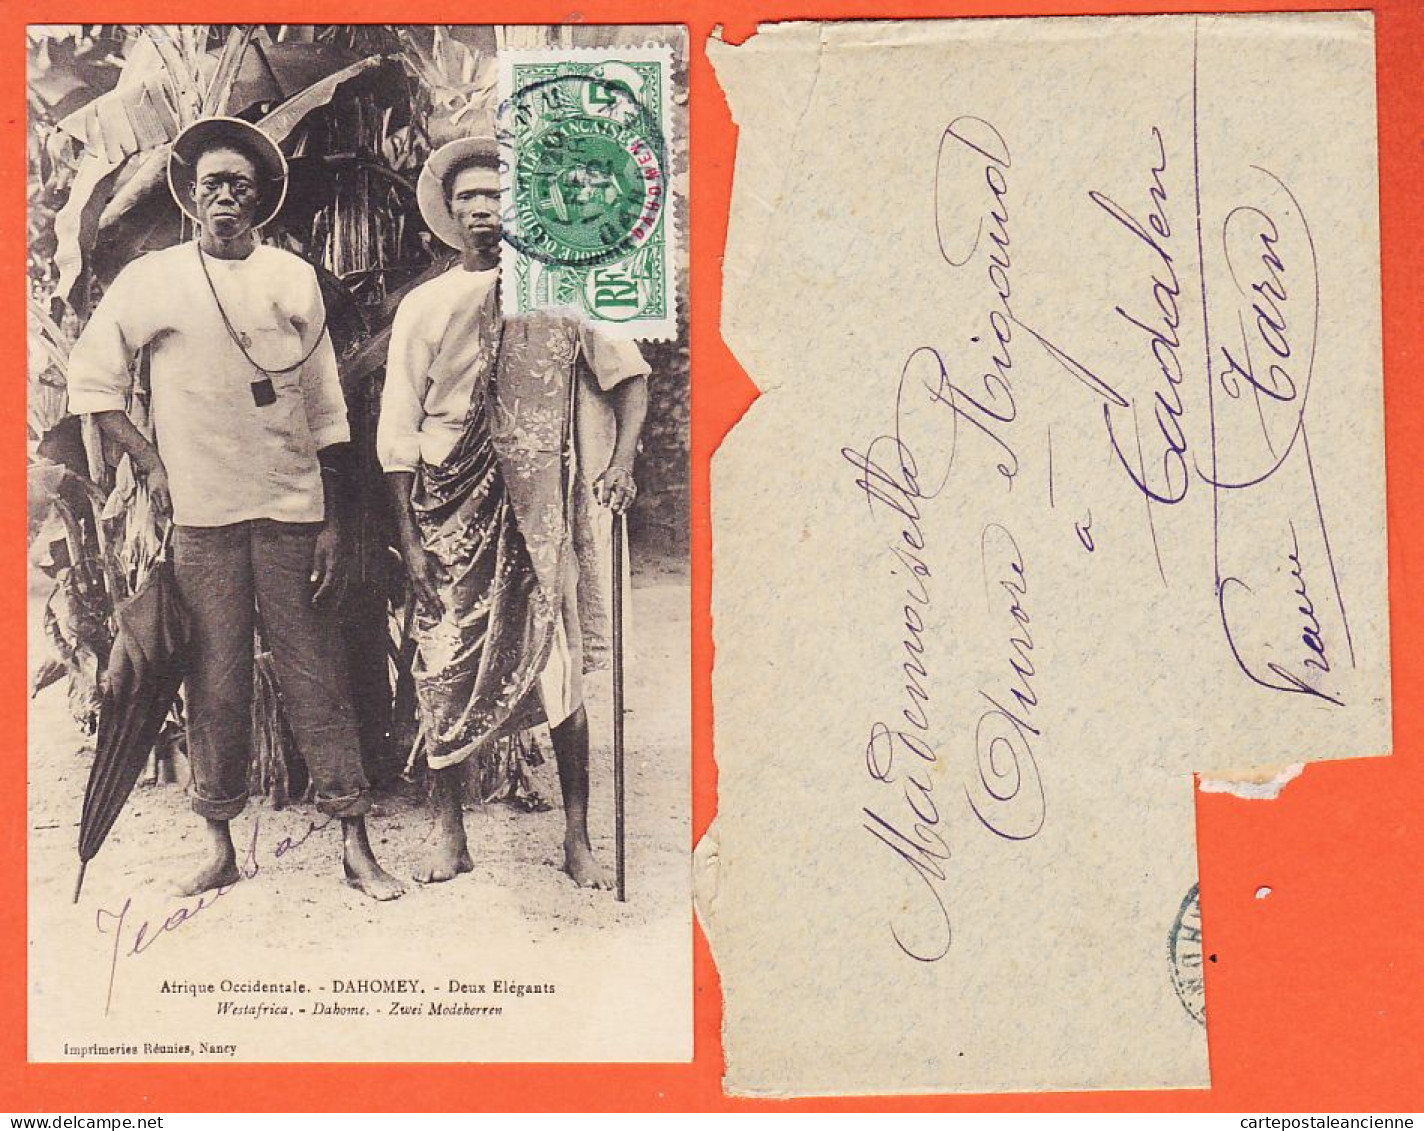 5
AFRIQUE OCCIDENTALE FRANÇAISE
DAHOMEY
RF
COTONOU
DAHOMEY
Jean
Afrique Occidentale. - DAHOMEY. - Deux Elégants
Westafrica. - Dahome. - Zwei Modeherren
Imprimeries Réunies, Nancy
Mademoiselle
Aurore Rigaud
à
Cadalen
Tarn
cartepostaleancienne.com